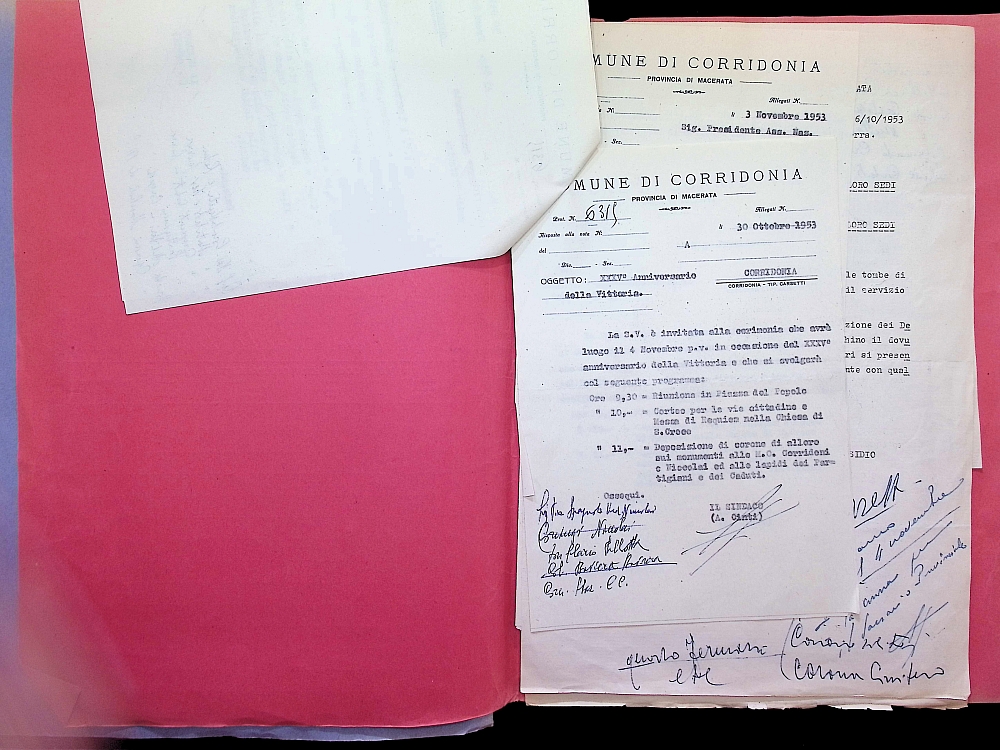 MUNE DI CORRIDONIA
PROVINCIA DI MACERATA
Allegati N.
lì 3 Novembre 1953
Sig. Presidente Ass. Naz.
ATA
6/10/1953
rra.
LORO SEDI
LORO SEDI
le tombe di
il servizio
zione dei De
hino il dovu
ri si presen
nte con qual
SIDIO
OMUNE DI CORRIDONIA
PROVINCIA DI MACERATA
Prot. N. 5315
Allegati N.
Risposta alla nota N.
lì 30 Ottobre 1953
del
A
Div. Sez.
OGGETTO: XXXV° Anniversario
della Vittoria.
CORRIDONIA
CORRIDONIA - TIP. CARSETTI
La S.V. è invitata alla cerimonia che avrà
luogo il 4 Novembre p.v. in occasione del XXXV°
anniversario della Vittoria e che si svolgerà
col seguente programma:
Ore 9,30 = Riunione in Piazza del Popolo
" 10,-- = Corteo per le vie cittadine e
Messa di Requiem nella Chiesa di
S.Croce
" 11,-- = Deposizione di corone di alloro
sui monumenti alle M.O. Corridoni
e Niccolai ed alle lapidi dei Par=
tigiani e dei Caduti.
Ossequi.
IL SINDACO
(A. Cinti)
4 novembre
quarto
etc
Corona Cimitero